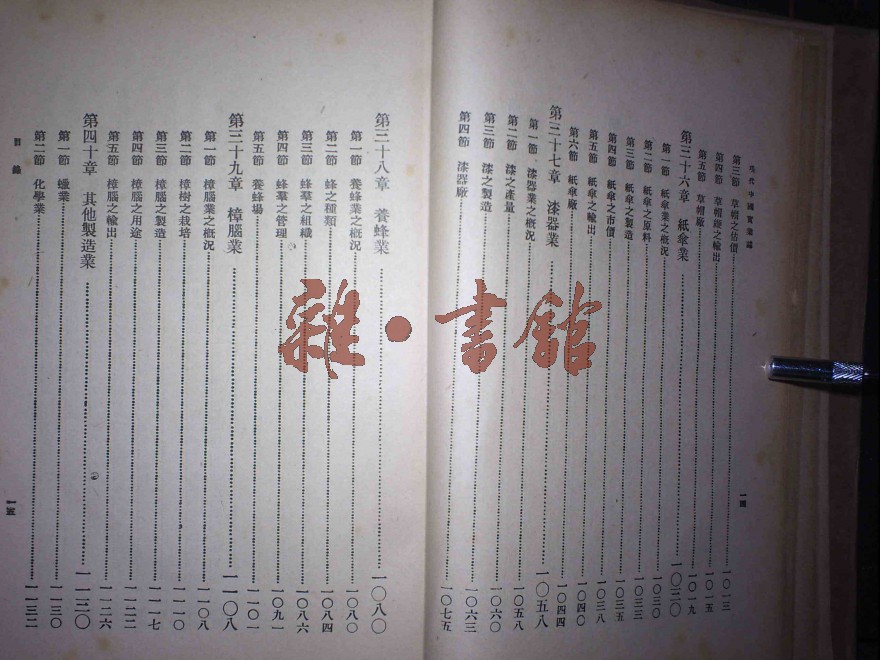 現代中國實業誌
第三節 草帽之估價 一〇一三
第四節 草帽緶之輸出 一〇一五
第五節 草帽廠 一〇一九
第三十六章 紙傘業 一〇三〇
第一節 紙傘業之概況 一〇三〇
第二節 紙傘之原料 一〇三三
第三節 紙傘之製造 一〇三五
第四節 紙傘之市價 一〇三八
第五節 紙傘之輸出 一〇四〇
第六節 紙傘廠 一〇四四
第三十七章 漆器業 一〇五八
第一節 漆器業之概況 一〇五八
第二節 漆之產量 一〇六〇
第三節 漆之製造 一〇六三
第四節 漆器廠 一〇七五
一四
第三十八章 養蜂業 一〇八〇
第一節 養蜂業之概況 一〇八〇
第二節 蜂之種類 一〇八四
第三節 蜂羣之組織 一〇八六
第四節 蜂羣之管理 一〇九一
第五節 養蜂場 一一〇一
第三十九章 樟腦業 一一〇八
第一節 樟腦業之概況 一一〇八
第二節 樟樹之栽培 一一一〇
第三節 樟腦之製造 一一一七
第四節 樟腦之用途 一一二三
第五節 樟腦之輸出 一一二六
第四十章 其他製造業 一一三〇
第一節 蠟業 一一三〇
第二節 化學業 一一三二
目錄
一五
雜·書館